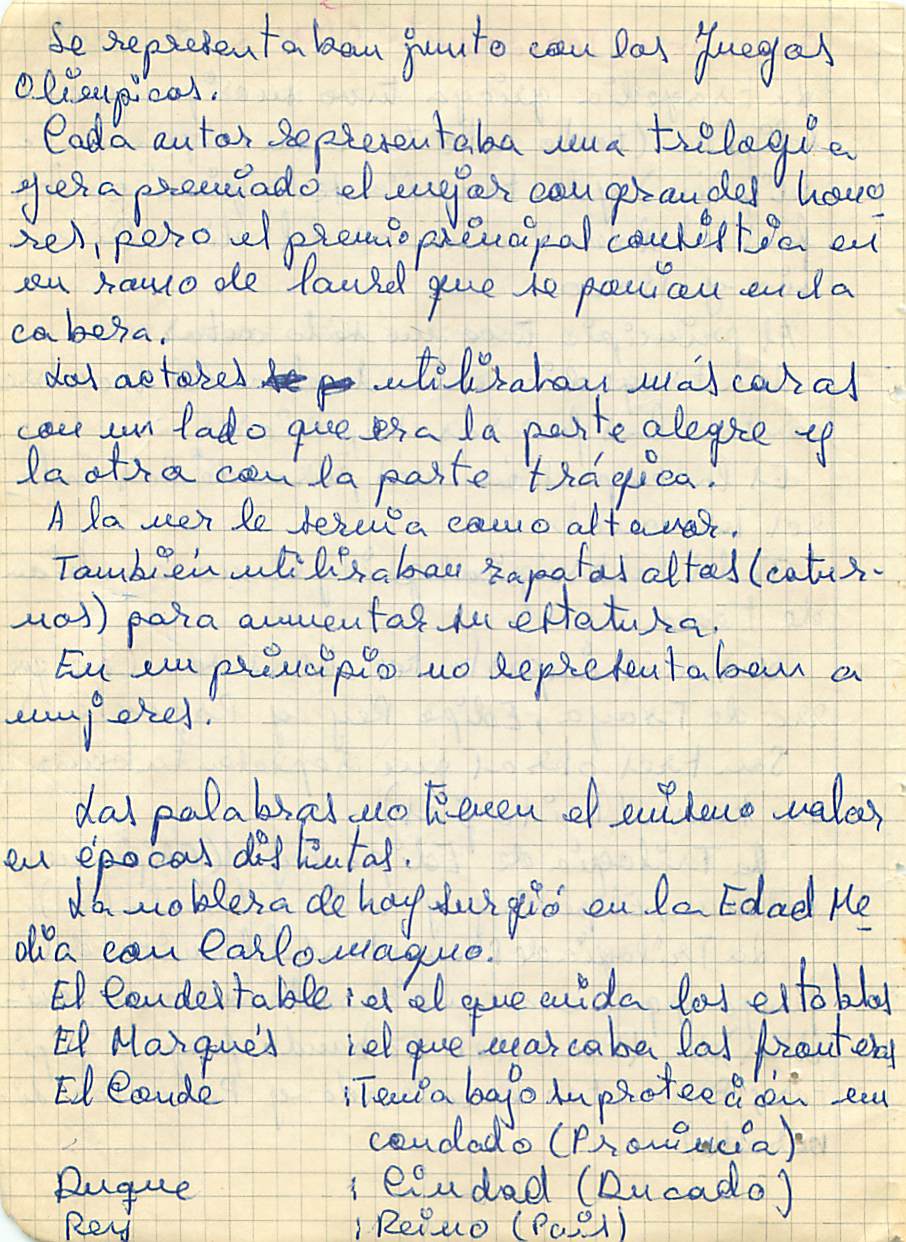 Se representaban junto con los Juegos
Olimpicos.
Cada autor representaba una trilogia
y era premiado el mejor con grandes hono
res, pero el premio principal consistia en
un ramo de laurel que se ponian en la
cabeza.
Los actores utilizaban máscaras
con un lado que era la parte alegre y
la otra con la parte trágica.
A la vez le servia como altavoz.
También utilizaban zapatos altos (cotur-
nos) para aumentar su estatura.
En un principio no representaban a
mujeres.
Las palabras no tienen el mismo valor
en épocas distintas.
La nobleza de hoy surgió en la Edad Me
dia con Carlomagno.
El Condestable : es el que cuida los establos
El Marqués : el que marcaba las fronteras
El Conde : Tenia bajo su protección un
condado (Provincia)
Duque : Ciudad (Ducado)
Rey : Reino (Pais)